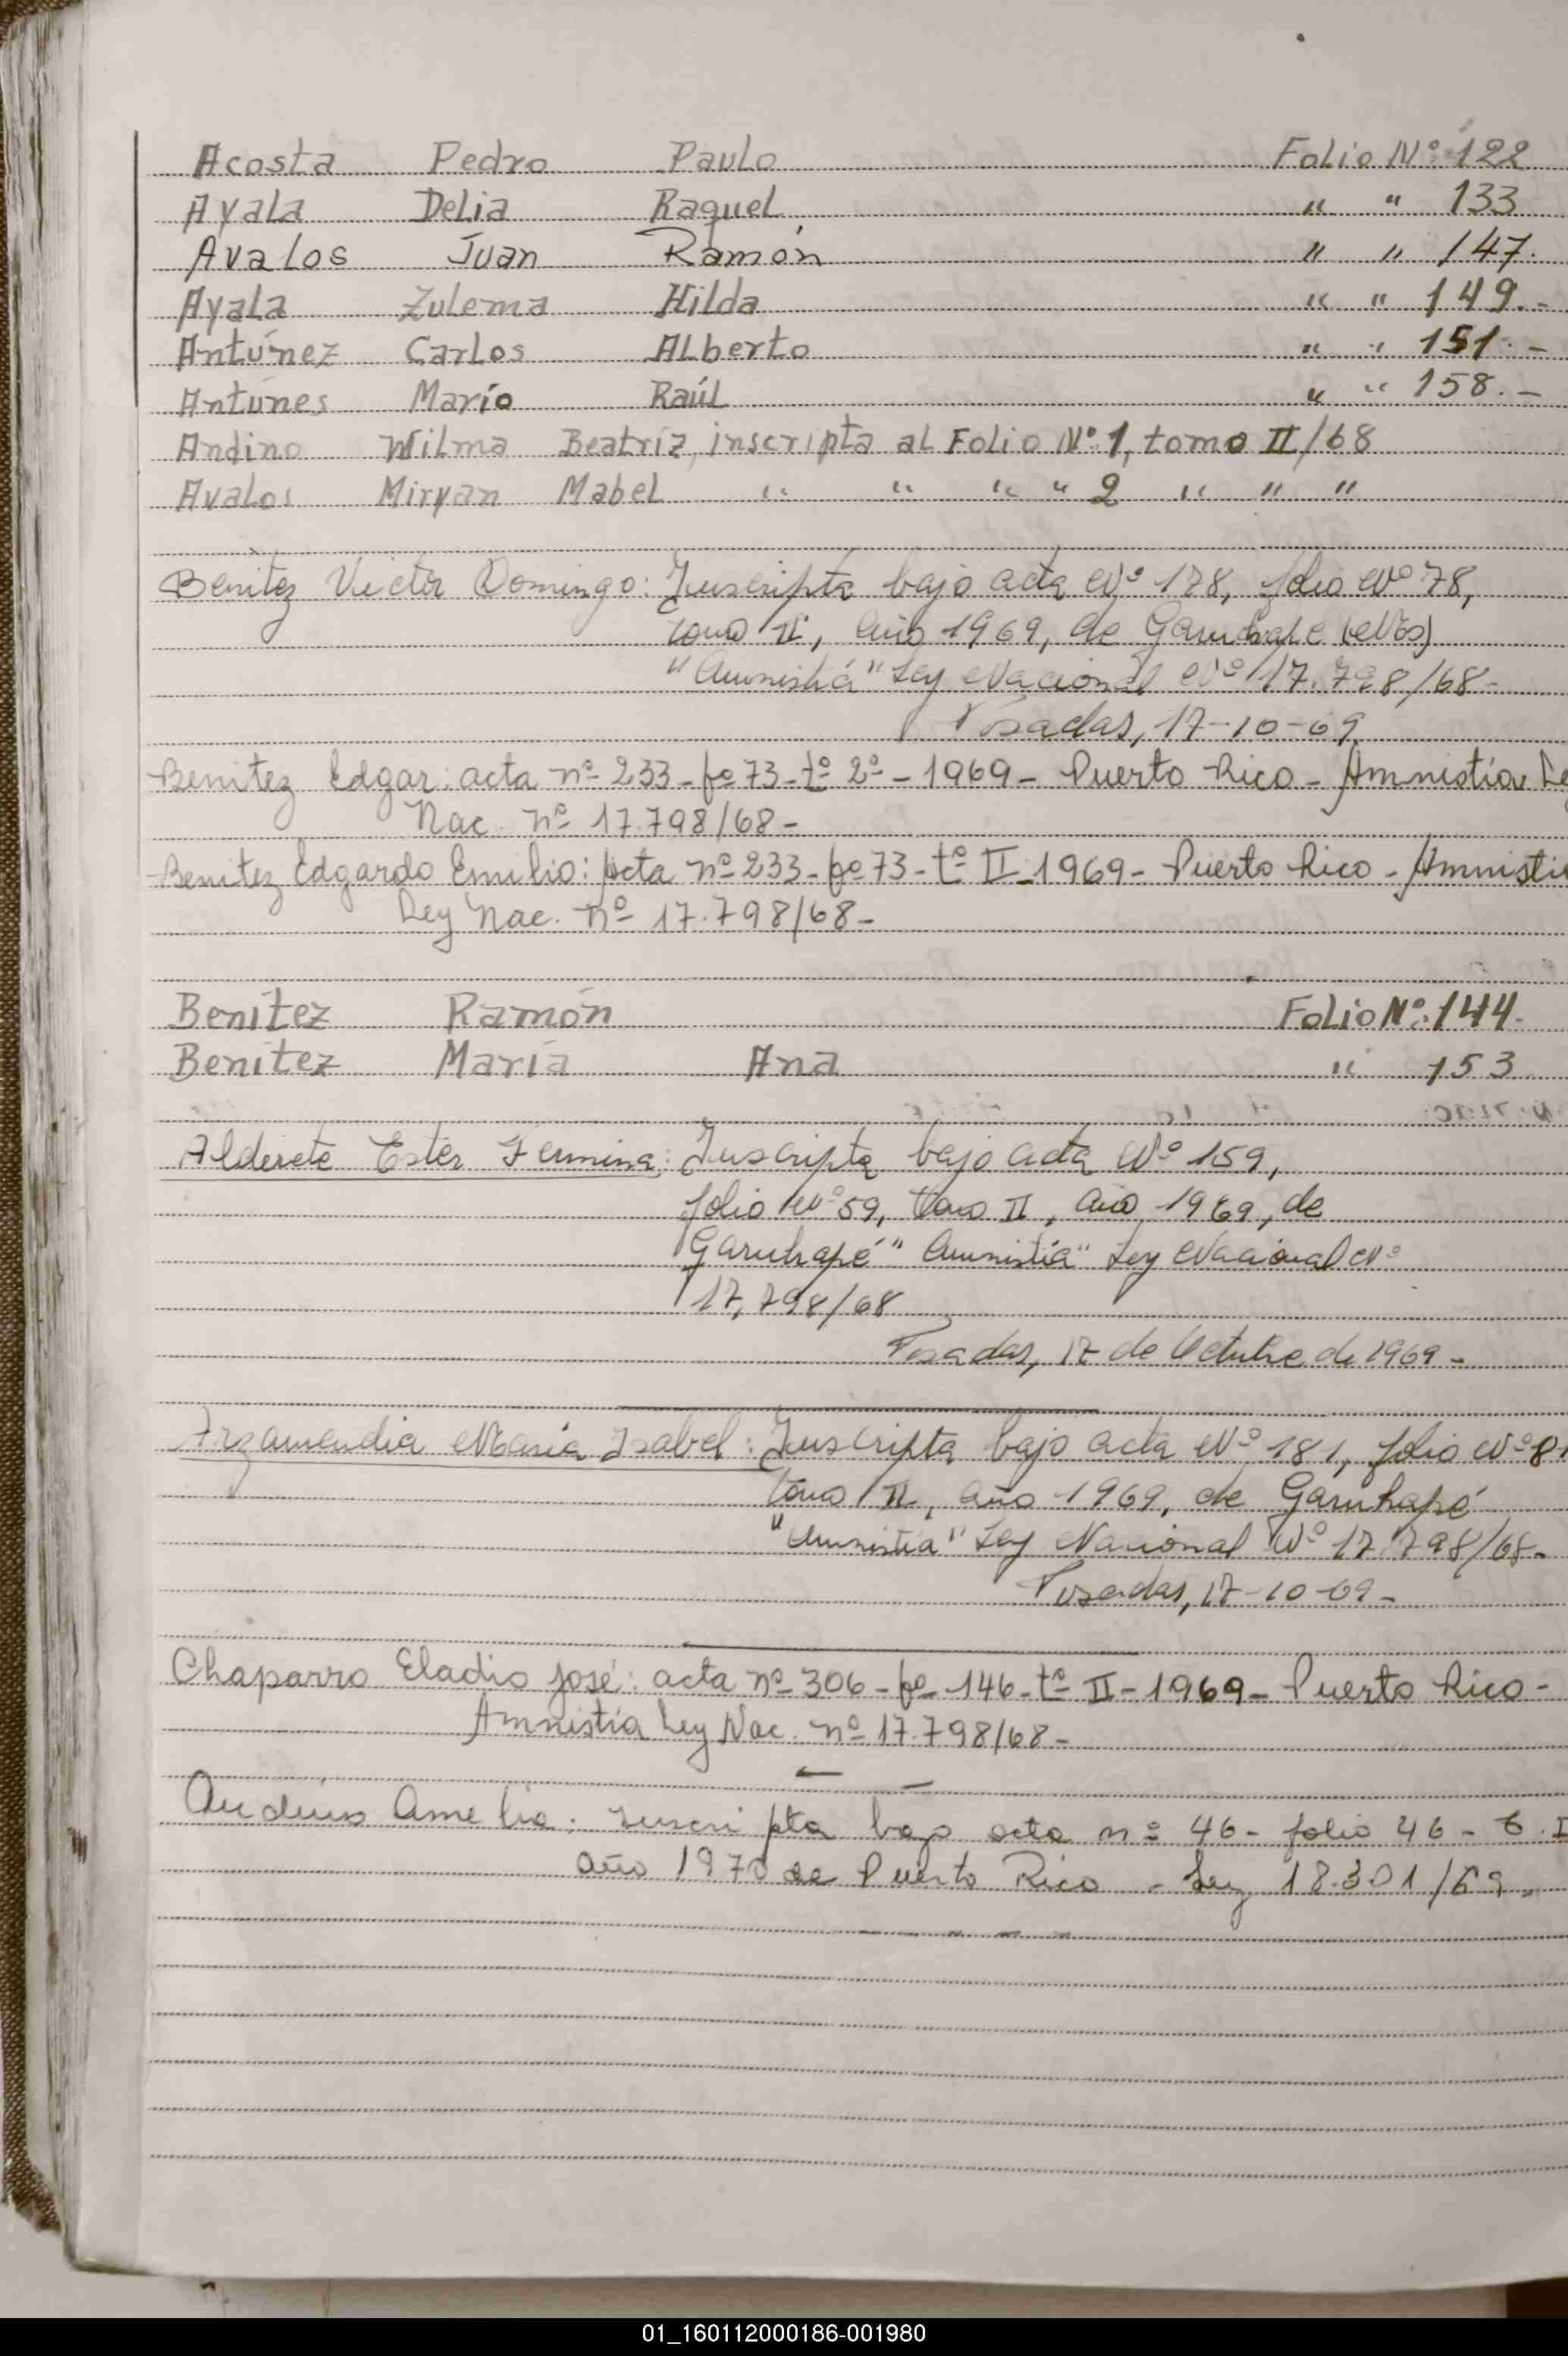 Acosta Pedro Paulo Folio Nº 122
Ayala Delia Raquel " " 133
Avalos Juan Ramón " " 147.
Ayala Zulema Hilda " " 149.-
Antúnez Carlos Alberto " " 151.-
Antúnes Mario Raúl " " 158.-
Andino Wilma Beatríz, inscripta al Folio Nº 1, tomo II/68
Avalos Miryan Mabel " " " " 2 " " "
Benitez Victor Domingo: Inscripta bajo acta Nº 178, folio Nº 78,
tomo II, año 1969, de Garuhape (Mes)
"Amnistía" Ley Nacional Nº 17.798/68-
Posadas, 17-10-69
Benitez Edgar: acta nº 233-fº 73-tº 2º-1969- Puerto Rico- Amnistía Le
Nac. nº 17.798/68-
Benitez Edgardo Emilio: acta nº 233-fº 73-tº II-1969- Puerto Rico- Amnisti
Ley Nac. nº 17.798/68-
Benítez Ramón Folio Nº: 144.
Benítez María Ana " 153
Alderete Ester Fermina: Inscripta bajo acta Nº 159,
folio Nº 59, tomo II, año 1969, de
Garuhapé "Amnistía" Ley Nacional Nº
17,798/68
Posadas, 17 de Octubre de 1969-
Arzamendia María Isabel: Inscripta bajo acta Nº 181, folio Nº 81
tomo II, año 1969, de Garuhapé
"Amnistía" Ley Nacional Nº 17.798/68-
Posadas, 17-10-69-
Chaparro Eladio José: acta nº 306-fº 146-tº II-1969- Puerto Rico-
Amnistía Ley Nac. nº 17.798/68-
Amelia: Inscripta bajo acta nº 46- folio 46- t. I
año 1970 de Puerto Rico - Ley 18.301/69-
01_160112000186-001980